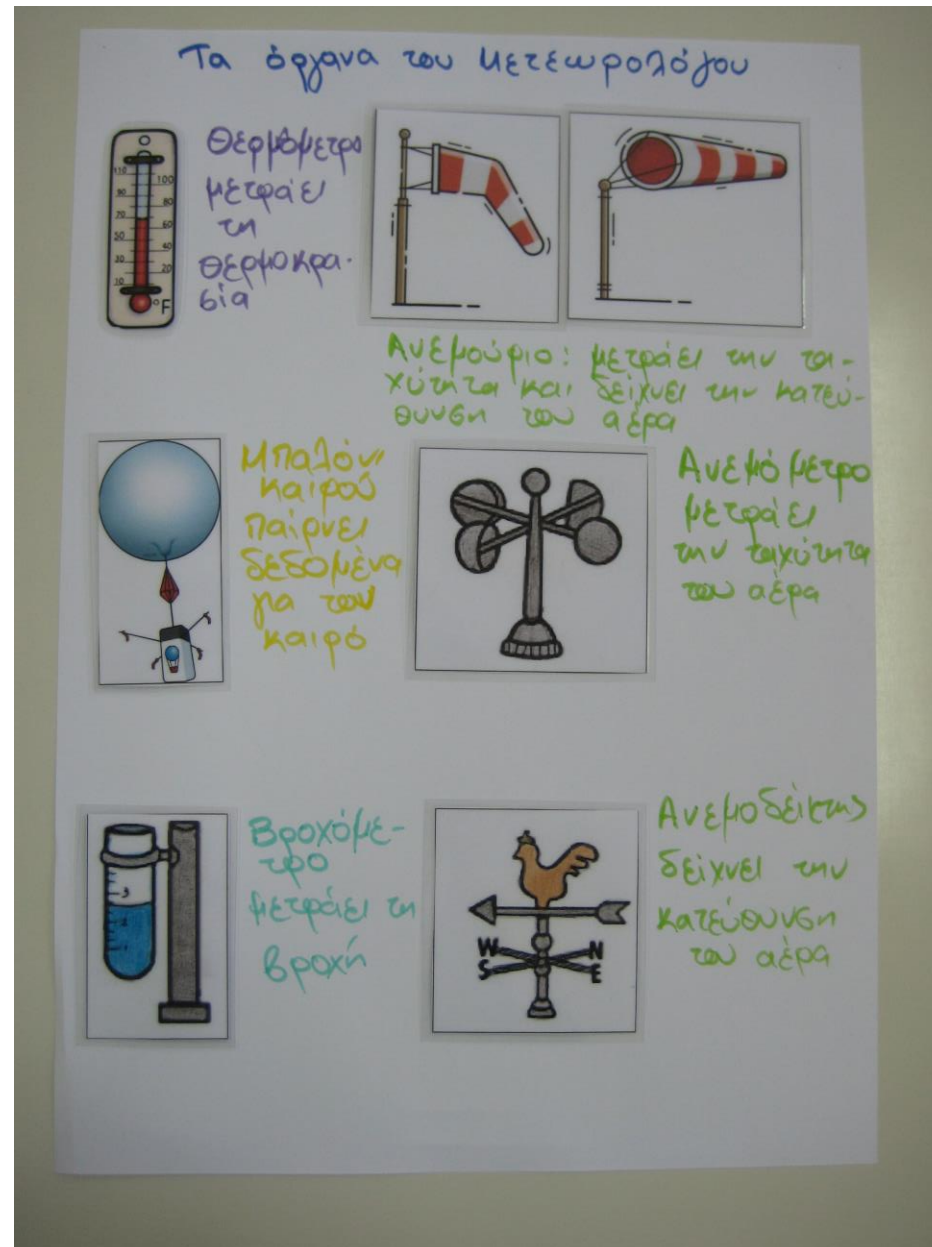 Τα όργανα του Μετεωρολόγου
Θερμόμετρο
μετράει
τη
θερμοκρα-
σία
110
90
70
50
30
10
100
80
60
40
20
°F
Ανεμούριο: μετράει την τα-
χύτητα και δείχνει την κατεύ-
θυνση του αέρα
Μπαλόνι
καιρού
παίρνει
δεδομένα
για τον
καιρό
Ανεμόμετρο
μετράει
την ταχύτητα
του αέρα
Βροχόμε-
τρο
μετράει τη
βροχή
W N
S E
Ανεμοδείκτης
δείχνει την
κατεύθυνση
του αέρα